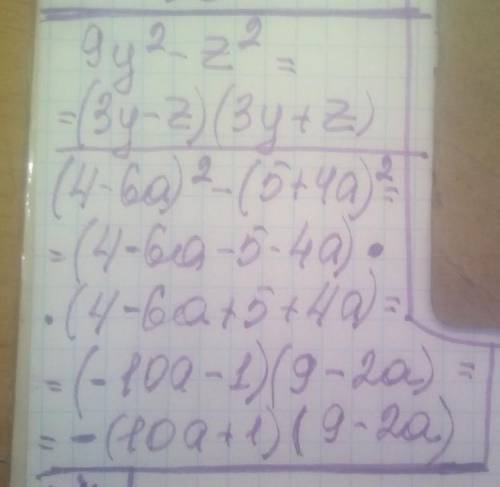 9y² - z² =
= (3y - z)(3y + z)
(4 - 6a)² - (5 + 4a)² =
= (4 - 6a - 5 - 4a) •
• (4 - 6a + 5 + 4a) =
= (-10a - 1)(9 - 2a) =
= -(10a + 1)(9 - 2a)